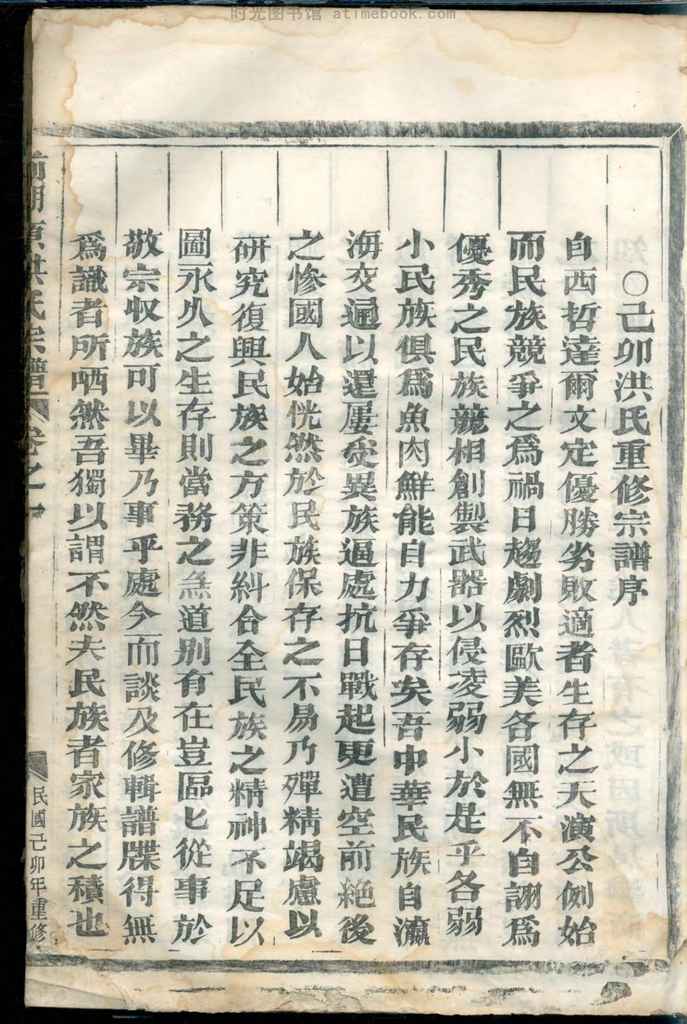 时光图书馆 atimebook.com
〇己卯洪氏重修宗譜序
自西哲達爾文定優勝劣敗適者生存之天演公例始
而民族競爭之爲禍日趨劇烈歐美各國無不自詡爲
優秀之民族競相創製武器以侵凌弱小於是乎各弱
小民族俱爲魚肉鮮能自力爭存矣吾中華民族自瀛
海交通以還屢受異族逼處抗日戰起更遭空前絶後
之慘國人始恍然於民族保存之不易乃殫精竭慮以
研究復興民族之方策非糾合全民族之精神不足以
圖永久之生存則當務之急道别有在豈區匕從事於
敬宗収族可以畢乃事乎處今而談及修輯譜牒得無
爲識者所哂然吾獨以謂不然夫民族者家族之積也
洪氏宗譜 卷之一
民國己卯年重修